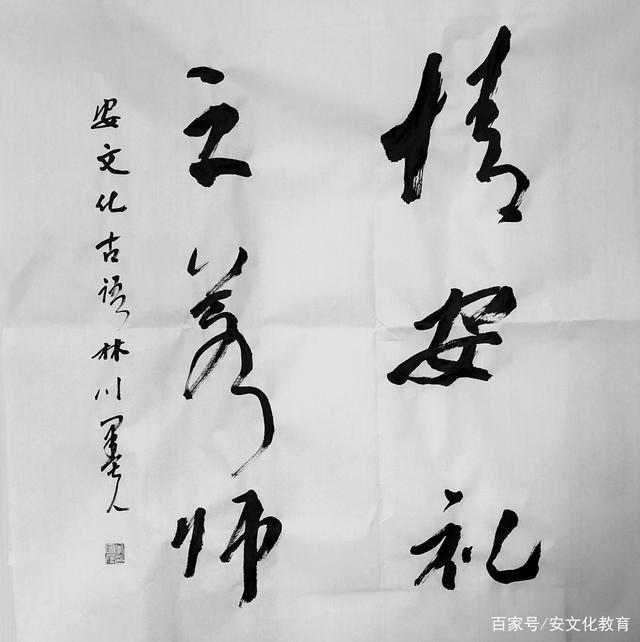 情安礼
之若师
安文化古语林川
百家号/安文化教育